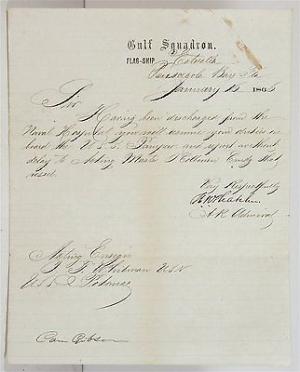 Gulf Squadron.
FLAG-SHIP Estrella
Pensacola Bay Fla
January 12 1865
Sir
Having been discharged from the
Naval Hospital you will resume your duties on
board the U.S.S. and report without
delay to Acting Master Comdg that
vessel.
Very Respectfully
A R Admiral
Acting Ensign
J. F. Whitman USN
U S S Potomac